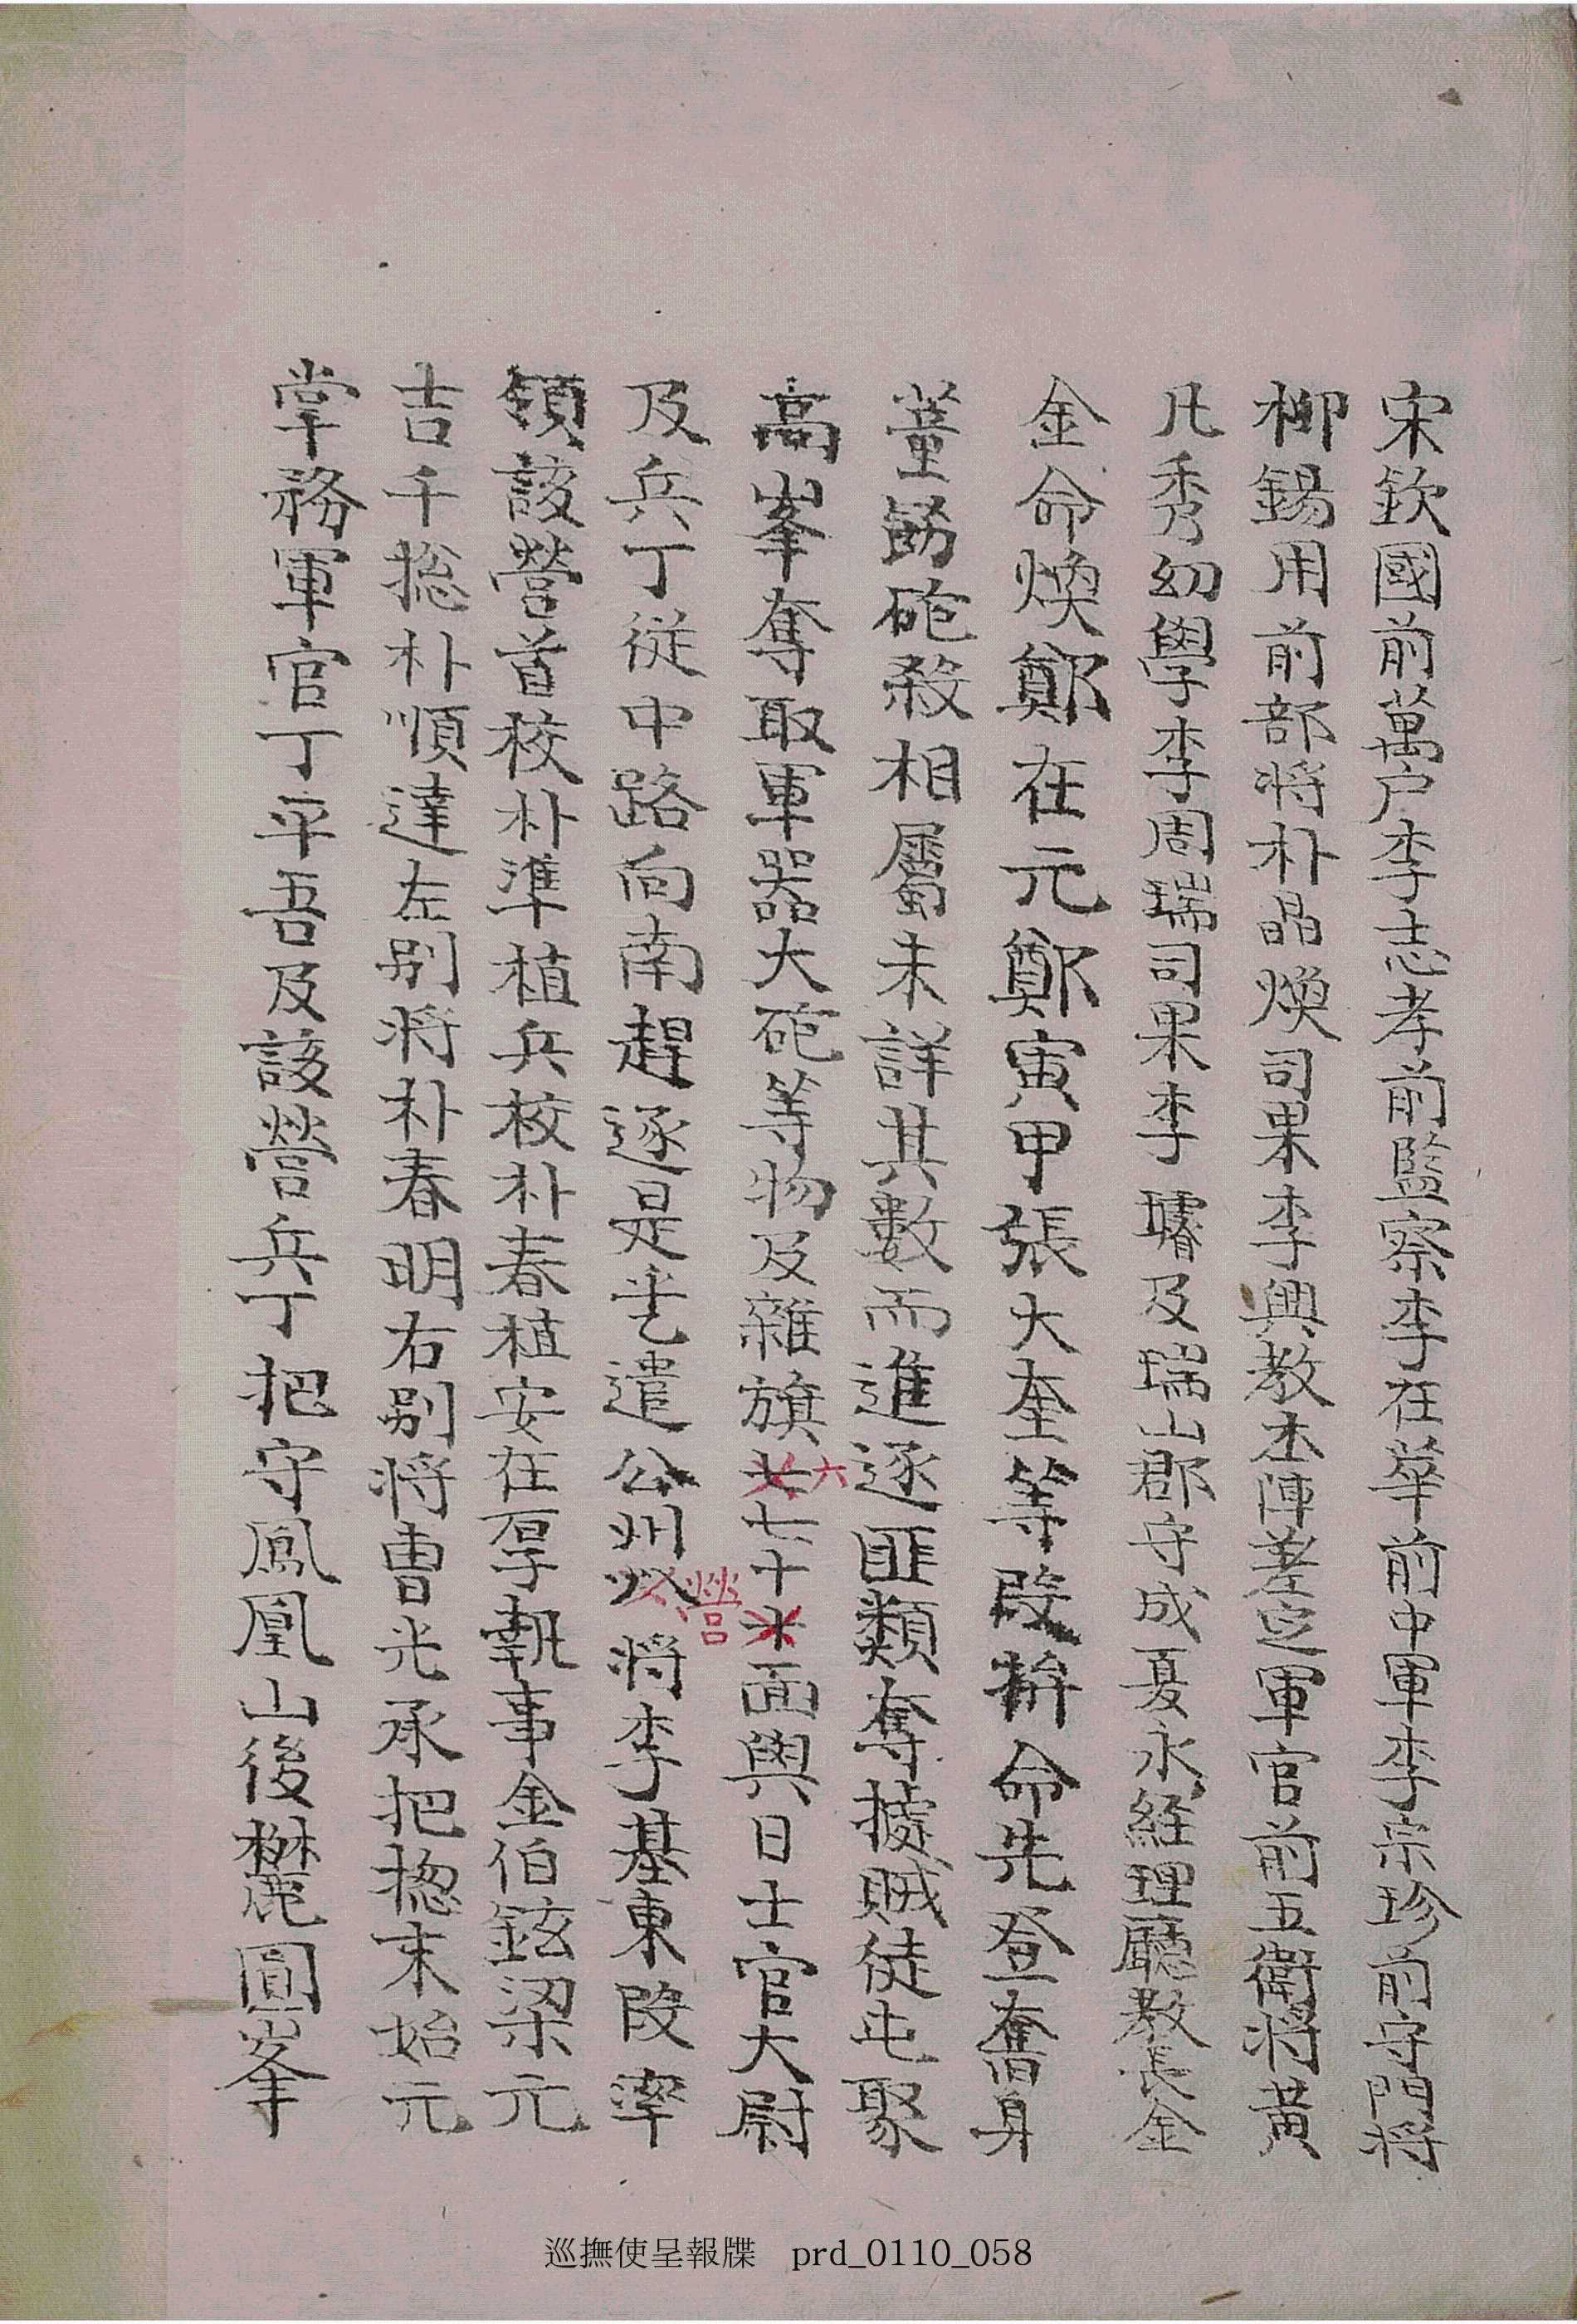 宋欽國前萬戶李志孝前監察李在華前中軍李宗珍前守門將
柳錫用前部將朴晶煥司果李興敎本陣差定軍官前五衛將黃
凡秀幼學李周瑞司果李璿及瑞山郡守成夏永經理廳敎長金
金命煥鄭在元鄭寅甲張大奎等段拚命先登奮身
董飭砲殺相屬未詳其數而進逐匪類奪據賊徒屯聚
高峯奪取軍器大砲等物及雜旗六七十面與日士官大尉
及兵丁從中路向南趕逐是乎乙遣公州營將李基東段率
領該營首校朴準植兵校朴春植安在厚執事金伯鉉梁元
吉千摠朴順達左別將朴春明右別將曺光承把摠末始元
掌務軍官丁平吾及該營兵丁把守鳳凰山後麓圓峯
巡撫使呈報牒 prd_0110_058